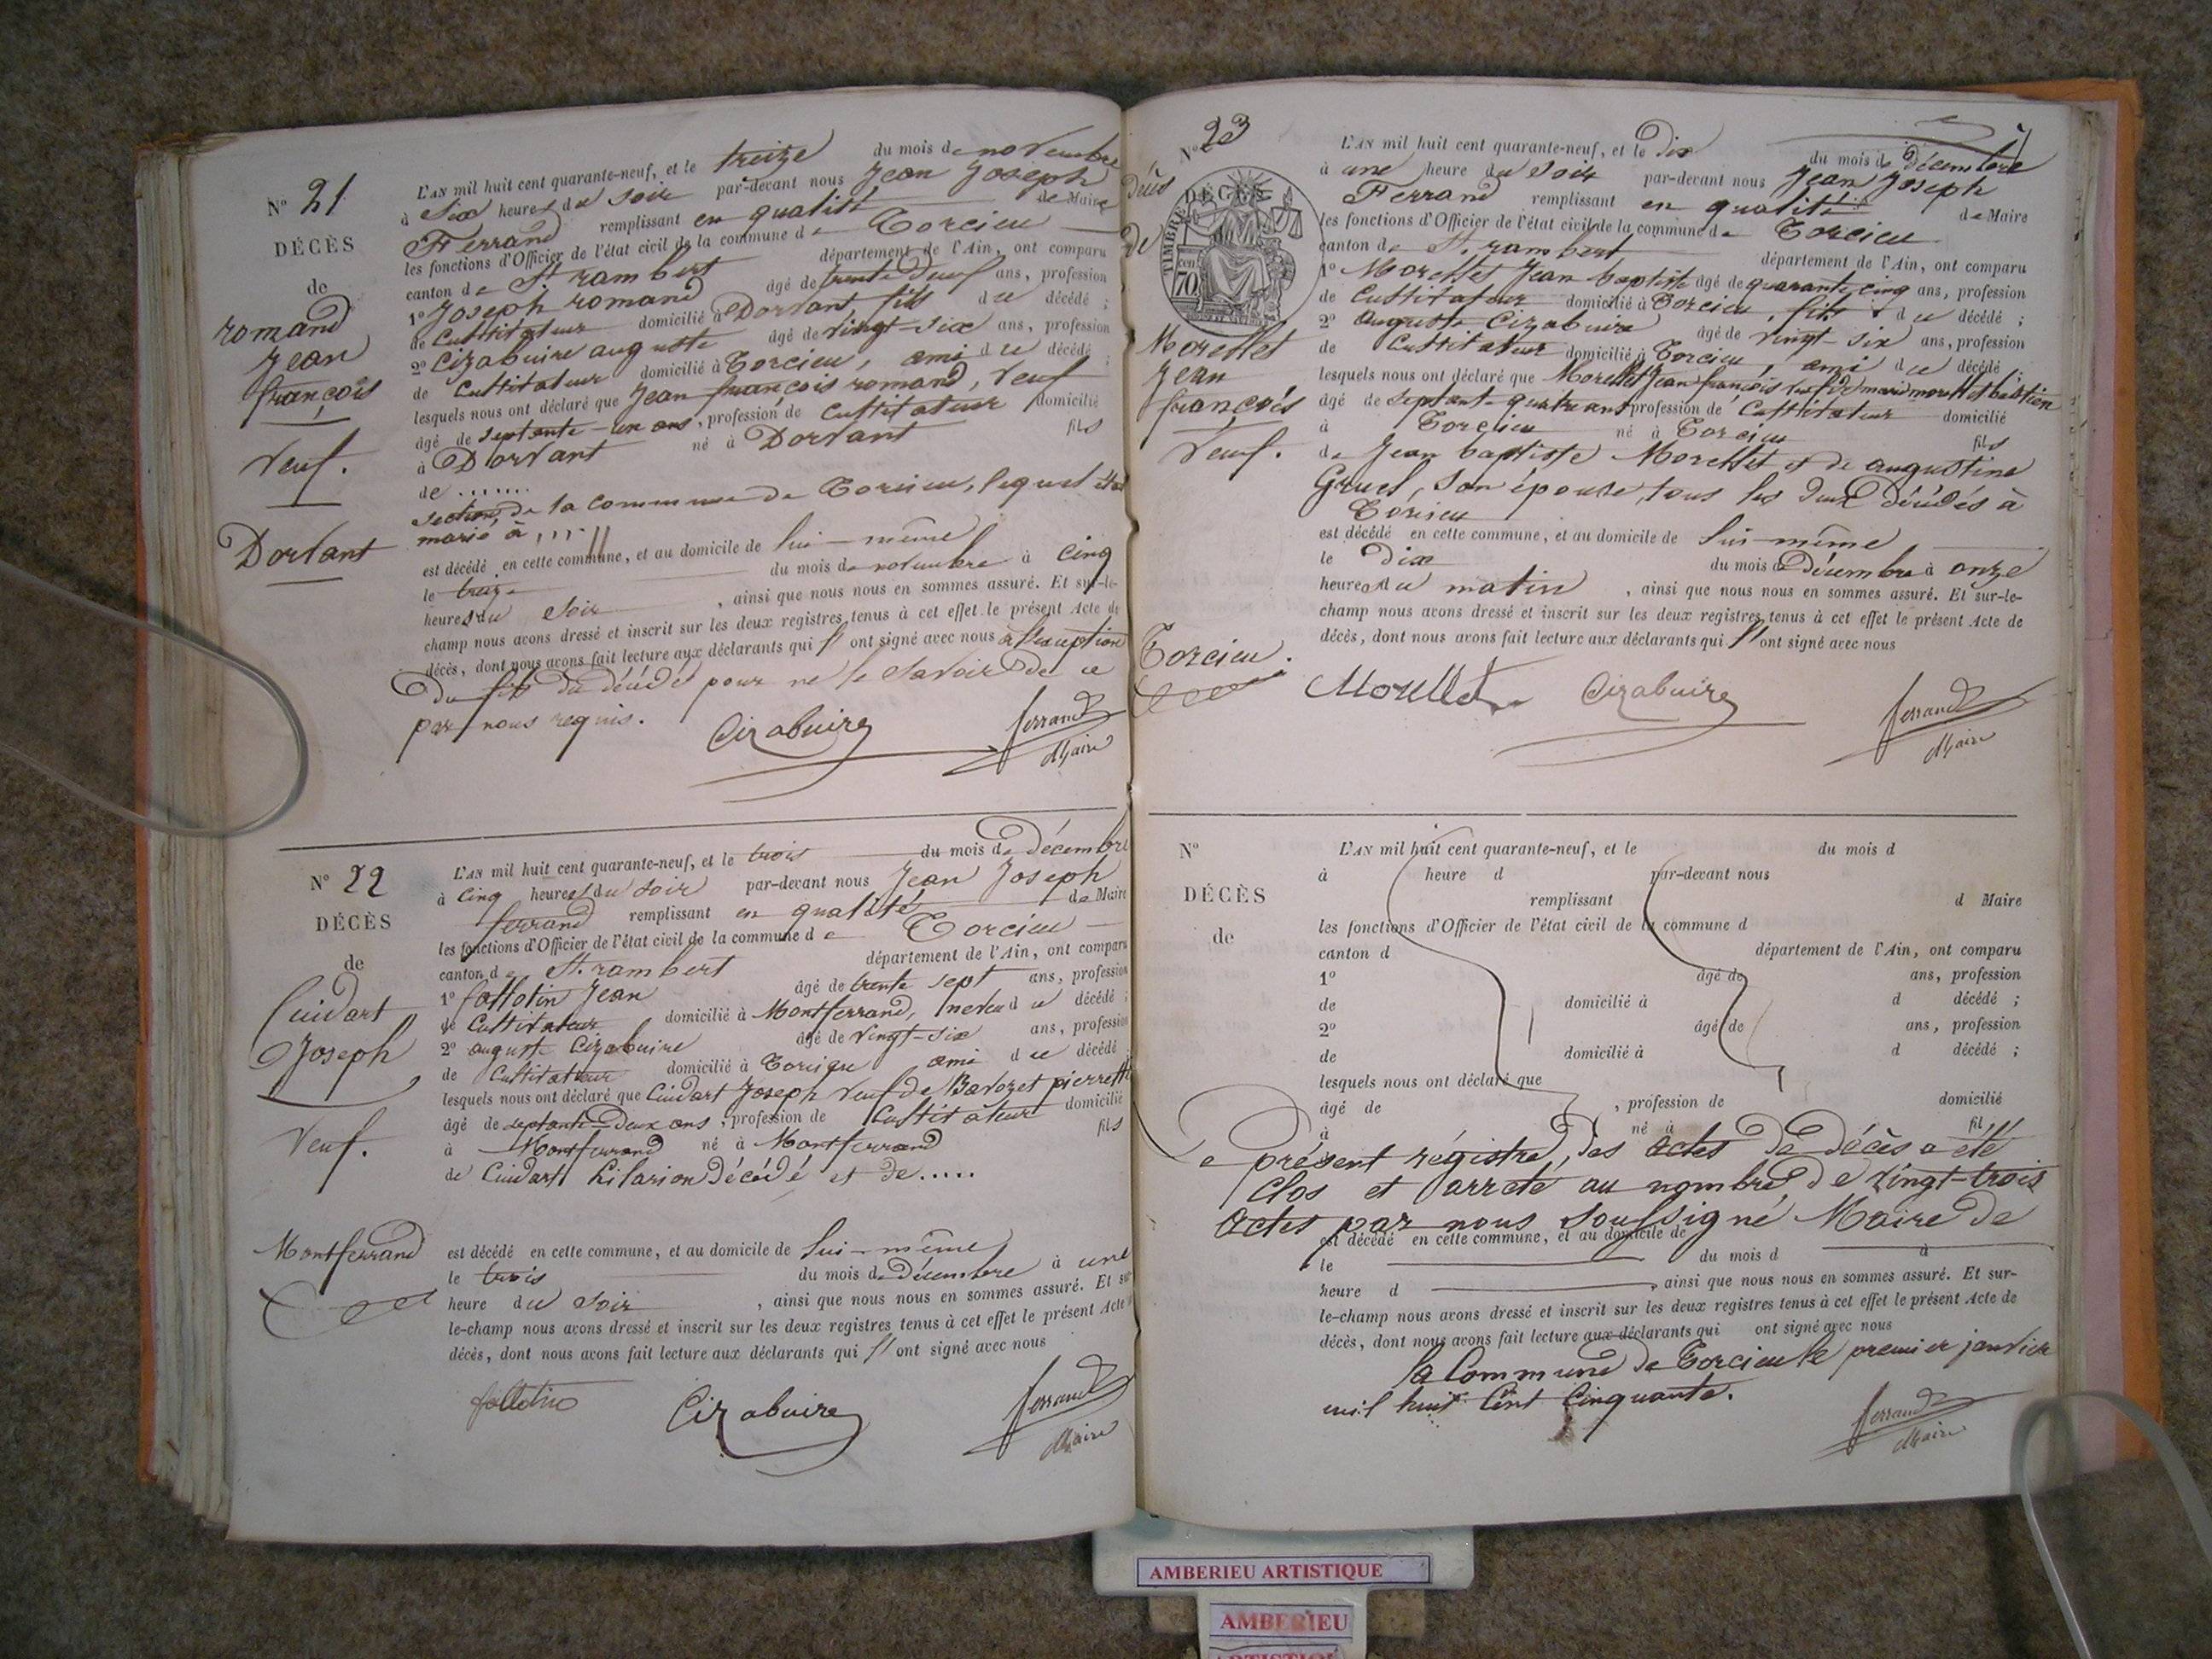 N° 21
DÉCÈS
de
romand
Jean
françois
Veuf.
Dorvant
L'AN mil huit cent quarante-neuf, et le treize du mois de novembre
à Six heures du soir par-devant nous Jean Joseph
Ferrand remplissant en qualité de Maire
les fonctions d'Officier de l'état civil de la commune de Torcieu
canton de St. rambert département de l'Ain, ont comparu
1° Joseph romand âgé de trente Deux ans, profession
de Cultitateur domicilié à Dorvant, fils du décédé ;
2° Cizabuire auguste âgé de Vingt-six ans, profession
de Cultitateur domicilié à Torcieu, ami du décédé ;
lesquels nous ont déclaré que Jean françois romand, Veuf
âgé de septante-un ans, profession de Cultitateur domicilié
à Dorvant né à Dorvant fils
de .......
section de la commune de Torcieu, lequel était
marié à ,,,
est décédé en cette commune, et au domicile de lui-même
le treize du mois de novembre à Cinq
heures du Soir , ainsi que nous nous en sommes assuré. Et sur-le-
champ nous avons dressé et inscrit sur les deux registres tenus à cet effet le présent Acte de
décès, dont nous avons fait lecture aux déclarants qui ont signé avec nous à l'exception
Du fils du décédé pour ne le Savoir De ce
par nous requis.
Cizabuire
ferrand
Maire
N° 22
DÉCÈS
de
Cuidart
Joseph
Veuf.
Montferrand
L'AN mil huit cent quarante-neuf, et le trois du mois de Décembre
à Cinq heures du soir par-devant nous Jean Joseph
ferrand remplissant en qualité de Maire
les fonctions d'Officier de l'état civil de la commune de Torcieu
canton de St. rambert département de l'Ain, ont comparu
1° follotin Jean âgé de trente sept ans, profession
de Cultitateur domicilié à Montferrand, neveu du décédé ;
2° auguste Cizabuire âgé de Vingt-six ans, profession
de Cultitateur domicilié à Torcieu ami du décédé
lesquels nous ont déclaré que Cuidart Joseph Veuf de Bavozet pierrette
âgé de septante-Deux ans, profession de Cultitateur domicilié
à Montferrand né à Montferrand fils
de Cuidart hilarion Décédé et de .....
est décédé en cette commune, et au domicile de lui-même
le trois du mois de Décembre à une
heure du Soir , ainsi que nous nous en sommes assuré. Et sur
le-champ nous avons dressé et inscrit sur les deux registres tenus à cet effet le présent Acte
décès, dont nous avons fait lecture aux déclarants qui ont signé avec nous
Cizabuire
ferrand
Maire
N° 23
décès
de
DÉCÈS
TIMBRE
70
Morellet
Jean
françois
Veuf.
Torcieu.
L'AN mil huit cent quarante-neuf, et le Dix du mois de décembre
à une heure du soir par-devant nous Jean Joseph
Ferrand remplissant en qualité de Maire
les fonctions d'Officier de l'état civil de la commune de Torcieu
canton de St. rambert département de l'Ain, ont comparu
1° Morellet Jean baptiste âgé de quarante cinq ans, profession
de Cultitateur domicilié à Torcieu, fils du décédé ;
2° auguste Cizabuire âgé de vingt-six ans, profession
de Cultitateur domicilié à Torcieu, ami du décédé ;
lesquels nous ont déclaré que Morellet Jean françois
âgé de septante-quatre ans profession de Cultitateur domicilié
à Torcieu né à Torcieu fils
de Jean baptiste Morellet et de augustine
Gruel, son épouse, tous les Deux décédés à
Torcieu
est décédé en cette commune, et au domicile de lui-même
le Dix du mois de Décembre à onze
heures du matin , ainsi que nous nous en sommes assuré. Et sur-le-
champ nous avons dressé et inscrit sur les deux registres tenus à cet effet le présent Acte de
décès, dont nous avons fait lecture aux déclarants qui ont signé avec nous
Morellet Cizabuire
ferrand
Maire
N°
DÉCÈS
de
L'AN mil huit cent quarante-neuf, et le du mois d
à heure d par-devant nous
remplissant d Maire
les fonctions d'Officier de l'état civil de la commune d
canton d département de l'Ain, ont comparu
1° âgé de ans, profession
de domicilié à d décédé ;
2° âgé de ans, profession
de domicilié à d décédé ;
lesquels nous ont déclaré que
âgé de , profession de domicilié
à né à fil
Le présent régistre, des actes de décès a été
Clos et arreté au nombre de Vingt-trois
actes par nous soussigné Maire de
est décédé en cette commune, et au domicile de
le du mois d à
heure d , ainsi que nous nous en sommes assuré. Et sur-
le-champ nous avons dressé et inscrit sur les deux registres tenus à cet effet le présent Acte de
décès, dont nous avons fait lecture aux déclarants qui ont signé avec nous
la Commune de Torcieu le premier janvier
mil huit Cent Cinquante.
ferrand
Maire
AMBERIEU ARTISTIQUE
AMBERIEU
ARTISTIQUE